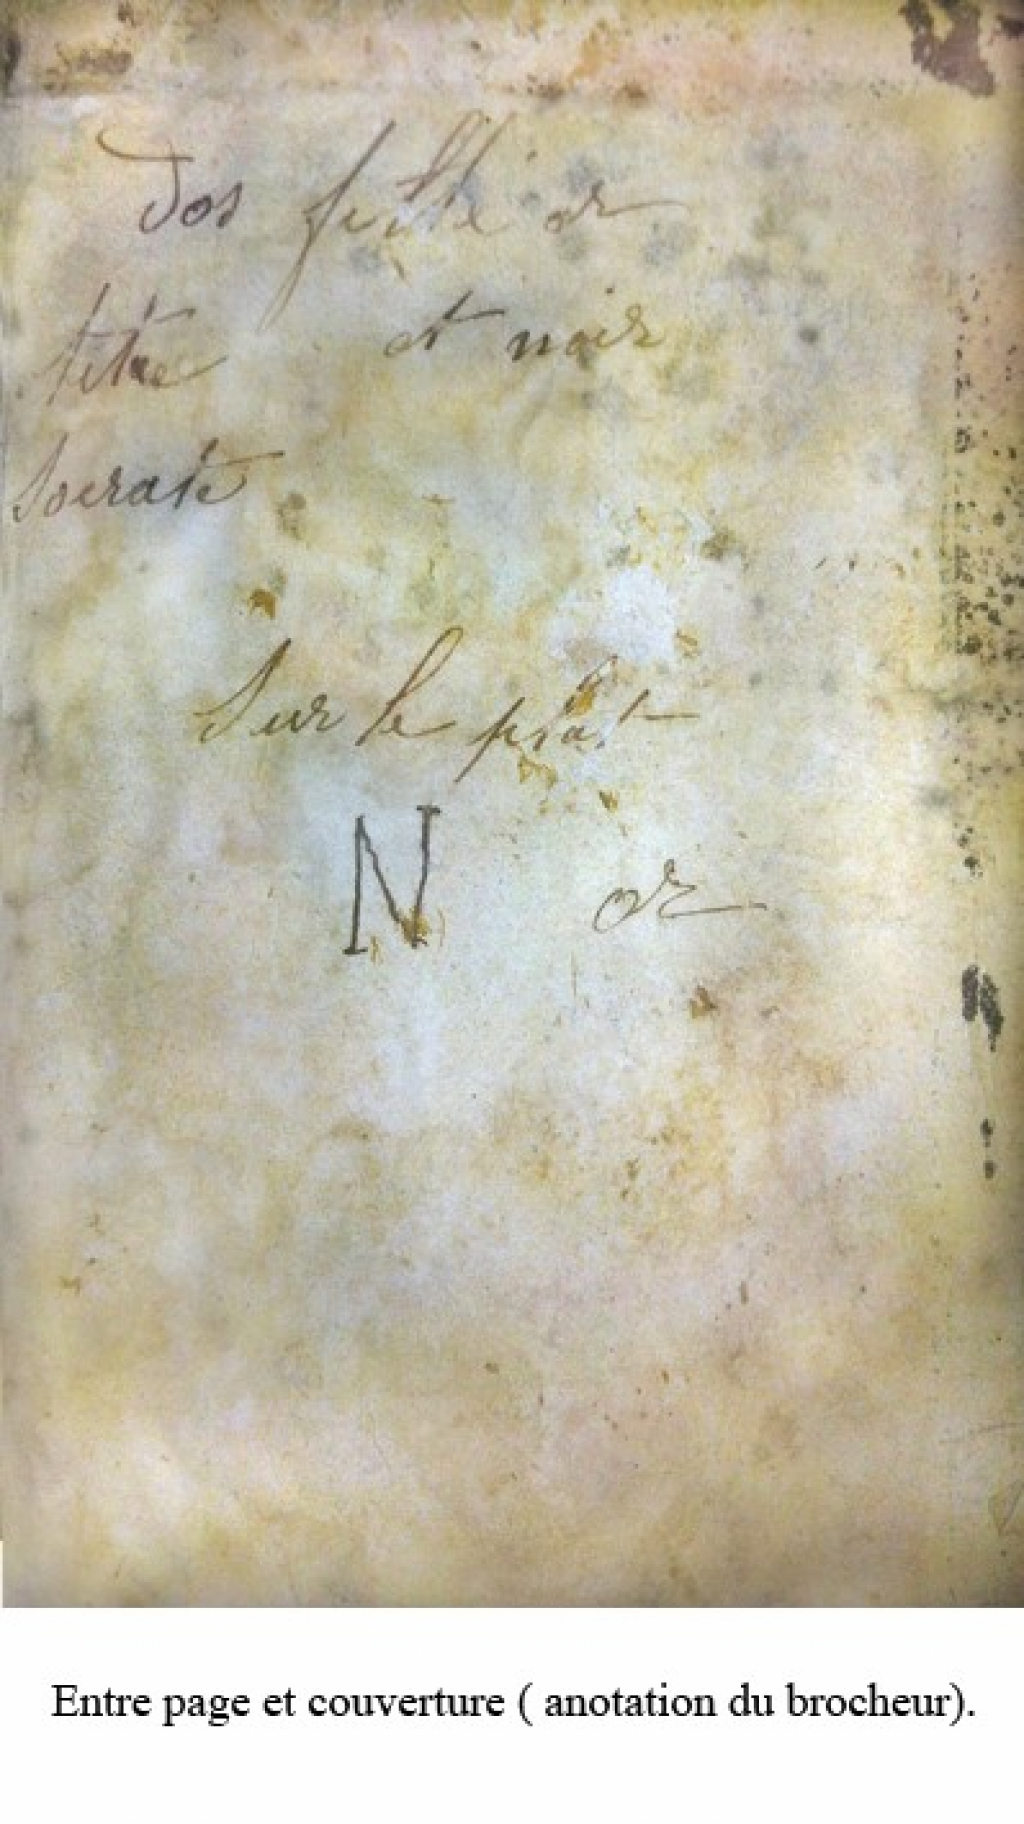 Dos filité or
titre et noir
Socrate
Sur le plat
N or
Entre page et couverture ( anotation du brocheur).